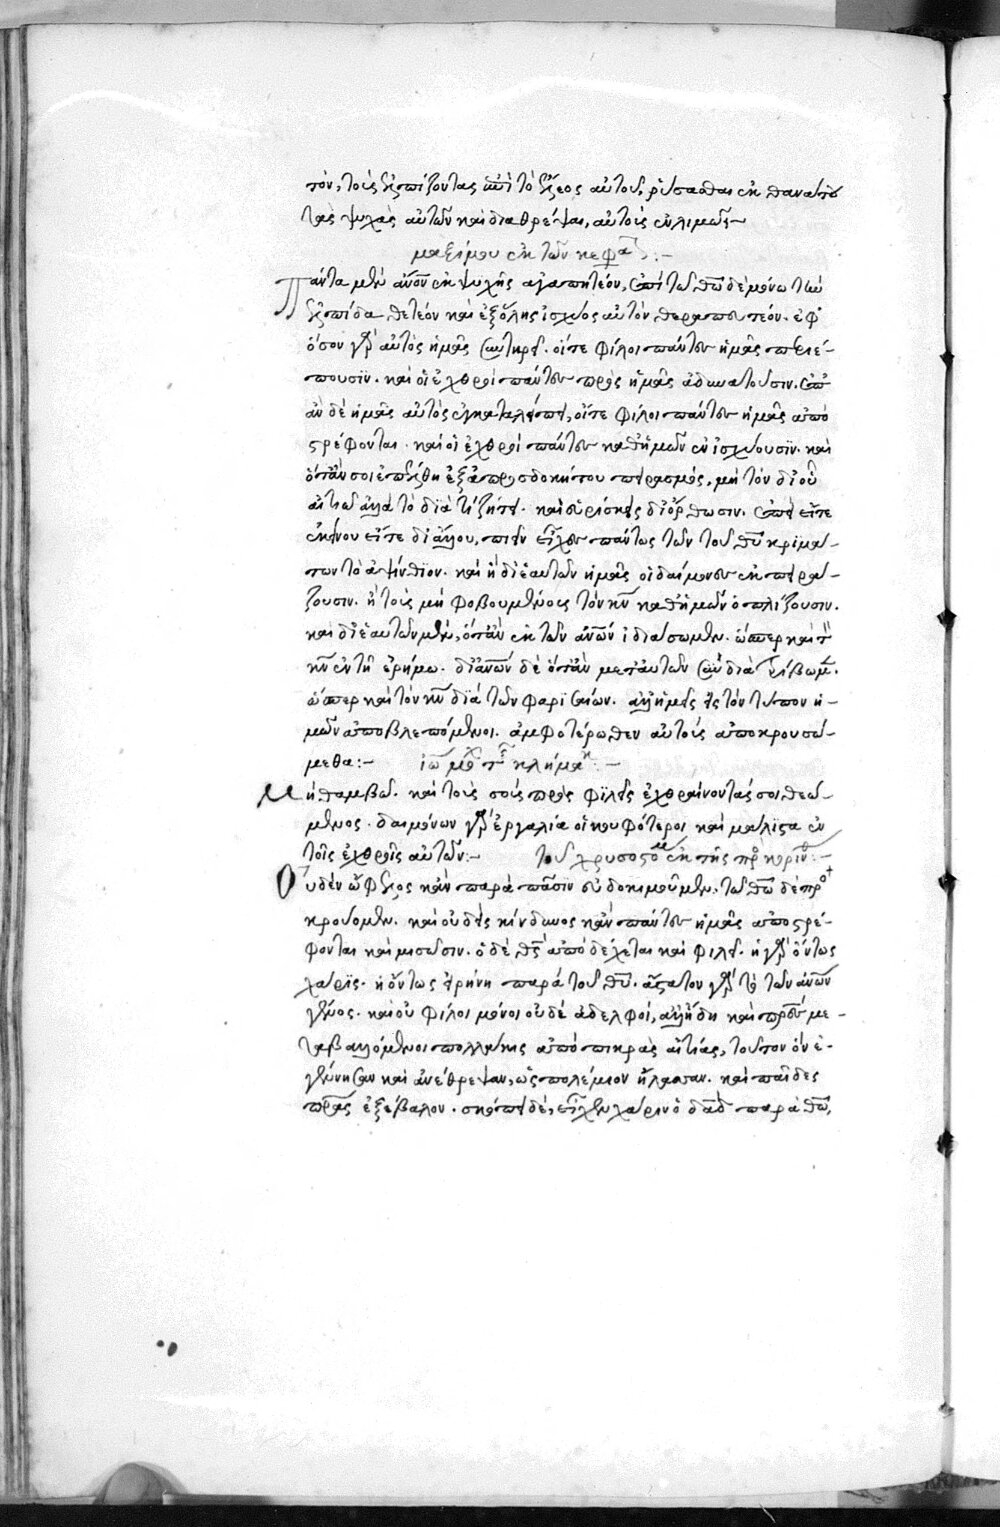 τόν, τοὺς ἐλπίζοντας ἐπὶ τὸ ἔλεος αὐτοῦ, ῥύσασθαι ἐκ θανάτου
τὰς ψυχὰς αὐτῶν καὶ διαθρέψαι, αὐτοὺς ἐν λιμῶ:~
μαξίμου ἐκ τῶν κεφαλ:~
Πάντα μὲν ἄνον ἐκ ψυχῆς ἀγαπητέον, ἐπὶ τῶ θῶ δὲ μόνω τὴν
ἐλπίδα θετέον καὶ ἐξ ὅλης ἰσχύος αὐτὸν θεραπευτέον. ἐφ'
ὅσον γὰρ αὐτὸς ἡμᾶς συντηρεῖ. οἵτε φίλοι πάντες ἡμᾶς περιέ-
πουσϊν. καὶ οἱ ἐχθροὶ πάντες πρὸς ἡμᾶς ἀδυνατοῦσιν. ἐπ
ἂν δὲ ἡμᾶς αὐτὸς ἐγκαταλείπει, οἵτε φίλοι πάντες ἡμᾶς ἀπο
στρέφονται. καὶ οἱ ἐχθροὶ πάντες καθ' ἡμῶν ἐνισχύουσϊν. καὶ
ὅτἄν σοι ἐπέλθη ἐξ ἀπροσδοκήτου πειρασμός, μὴ τὸν δι' οὗ
αἰτιῶ ἀλλὰ τὸ διατί ζήτει. καὶ εὑρίσκεις διόρθωσιν. ἐπεὶ εἴτε
ἐκείνου εἴτε δι' ἄλλου, πιεῖν εἶχες πάντως τῶν τοῦ θῦ κριμά-
των τὸ ἀψίνθϊον. καὶ ἢ δι' ἑαυτῶν ἡμᾶς οἱ δαίμονες ἐκπειρά-
ζουσιν. ἢ τοὺς μὴ φοβουμένους τὸν κν καθ' ἡμῶν ὁπλίζουσιν.
καὶ δι' ἑαυτῶν μὲν, ὅτἂν ἐκ τῶν ἀνῶν ἰδιάσωμεν. ὥσπερ καὶ τὸν
κν ἐν τῆ ἐρήμω. δι' ἀνῶν δὲ ὅτἂν μετ' αὐτῶν συνδιατρίβωμεν.
ὥσπερ καὶ τὸν κν διὰ τῶν φαρϊσαίων. ἀλλ' ἡμεῖς εἰς τὸν τύπον ἡ-
μῶν ἀποβλεπόμενοι. ἀμφοτέρωθεν αὐτοὺς ἀποκρουσώ-
μεθα:~ ἰω μο τ κλήμακ:~
Μὴ θαμβοῦ. καὶ τοὺς σοὺς πρὸς φίλεις ἐχθραίνοντάς σοι θεώ-
μενος. δαιμόνων γὰρ ἐργαλία οἱ κουφότεροι καὶ μάλϊστα ἐν
τοῖς ἐχθροῖς αὐτῶν:~ τοῦ χρυσοστόμ ἐκ τῆς πρ κορινθ:~
Οὐδὲν ὄφελος κἂν παρὰ πᾶσιν εὐδοκιμοῦμεν, τῶ θῶ δὲ προσ
κρούομεν. καὶ οὐδεὶς κίνδυνος κἂν πάντες ἡμᾶς ἀποστρέ-
φονται καὶ μισῶσιν. ὁ δὲ θς ἀποδέχεται καὶ φιλεῖ. ἡ γὰρ ὄντως
χάρϊς. ἡ ὄντως εἰρήνη παρὰ τοῦ θῦ. ἄστατον γὰρ τὸ τῶν ἀνῶν
γένος. καὶ οὐ φίλοι μόνοι οὐδὲ ἀδελφοί, ἀλλ' ἤδη καὶ πρες με-
ταβαλλόμενοι πολλάκις ἀπὸ μικρᾶς αἰτίας, τοῦτον ὃν ἐ-
γέννησαν καὶ ἀνέθρεψαν, ὡς πολέμιον ἤλασαν. καὶ παῖδες
πρας ἐξέβαλον. σκόπει δέ, εἶχε χάριν ὁ δαδ παρὰ θῶ,